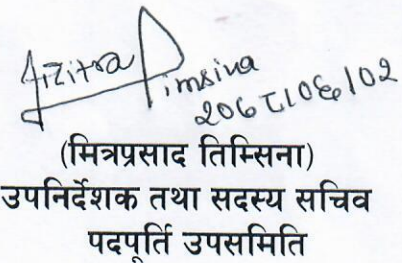 Timsina
206८।०६।02
(मित्रप्रसाद तिम्सिना)
उपनिर्देशक तथा सदस्य सचिव
पदपूर्ति उपसमिति